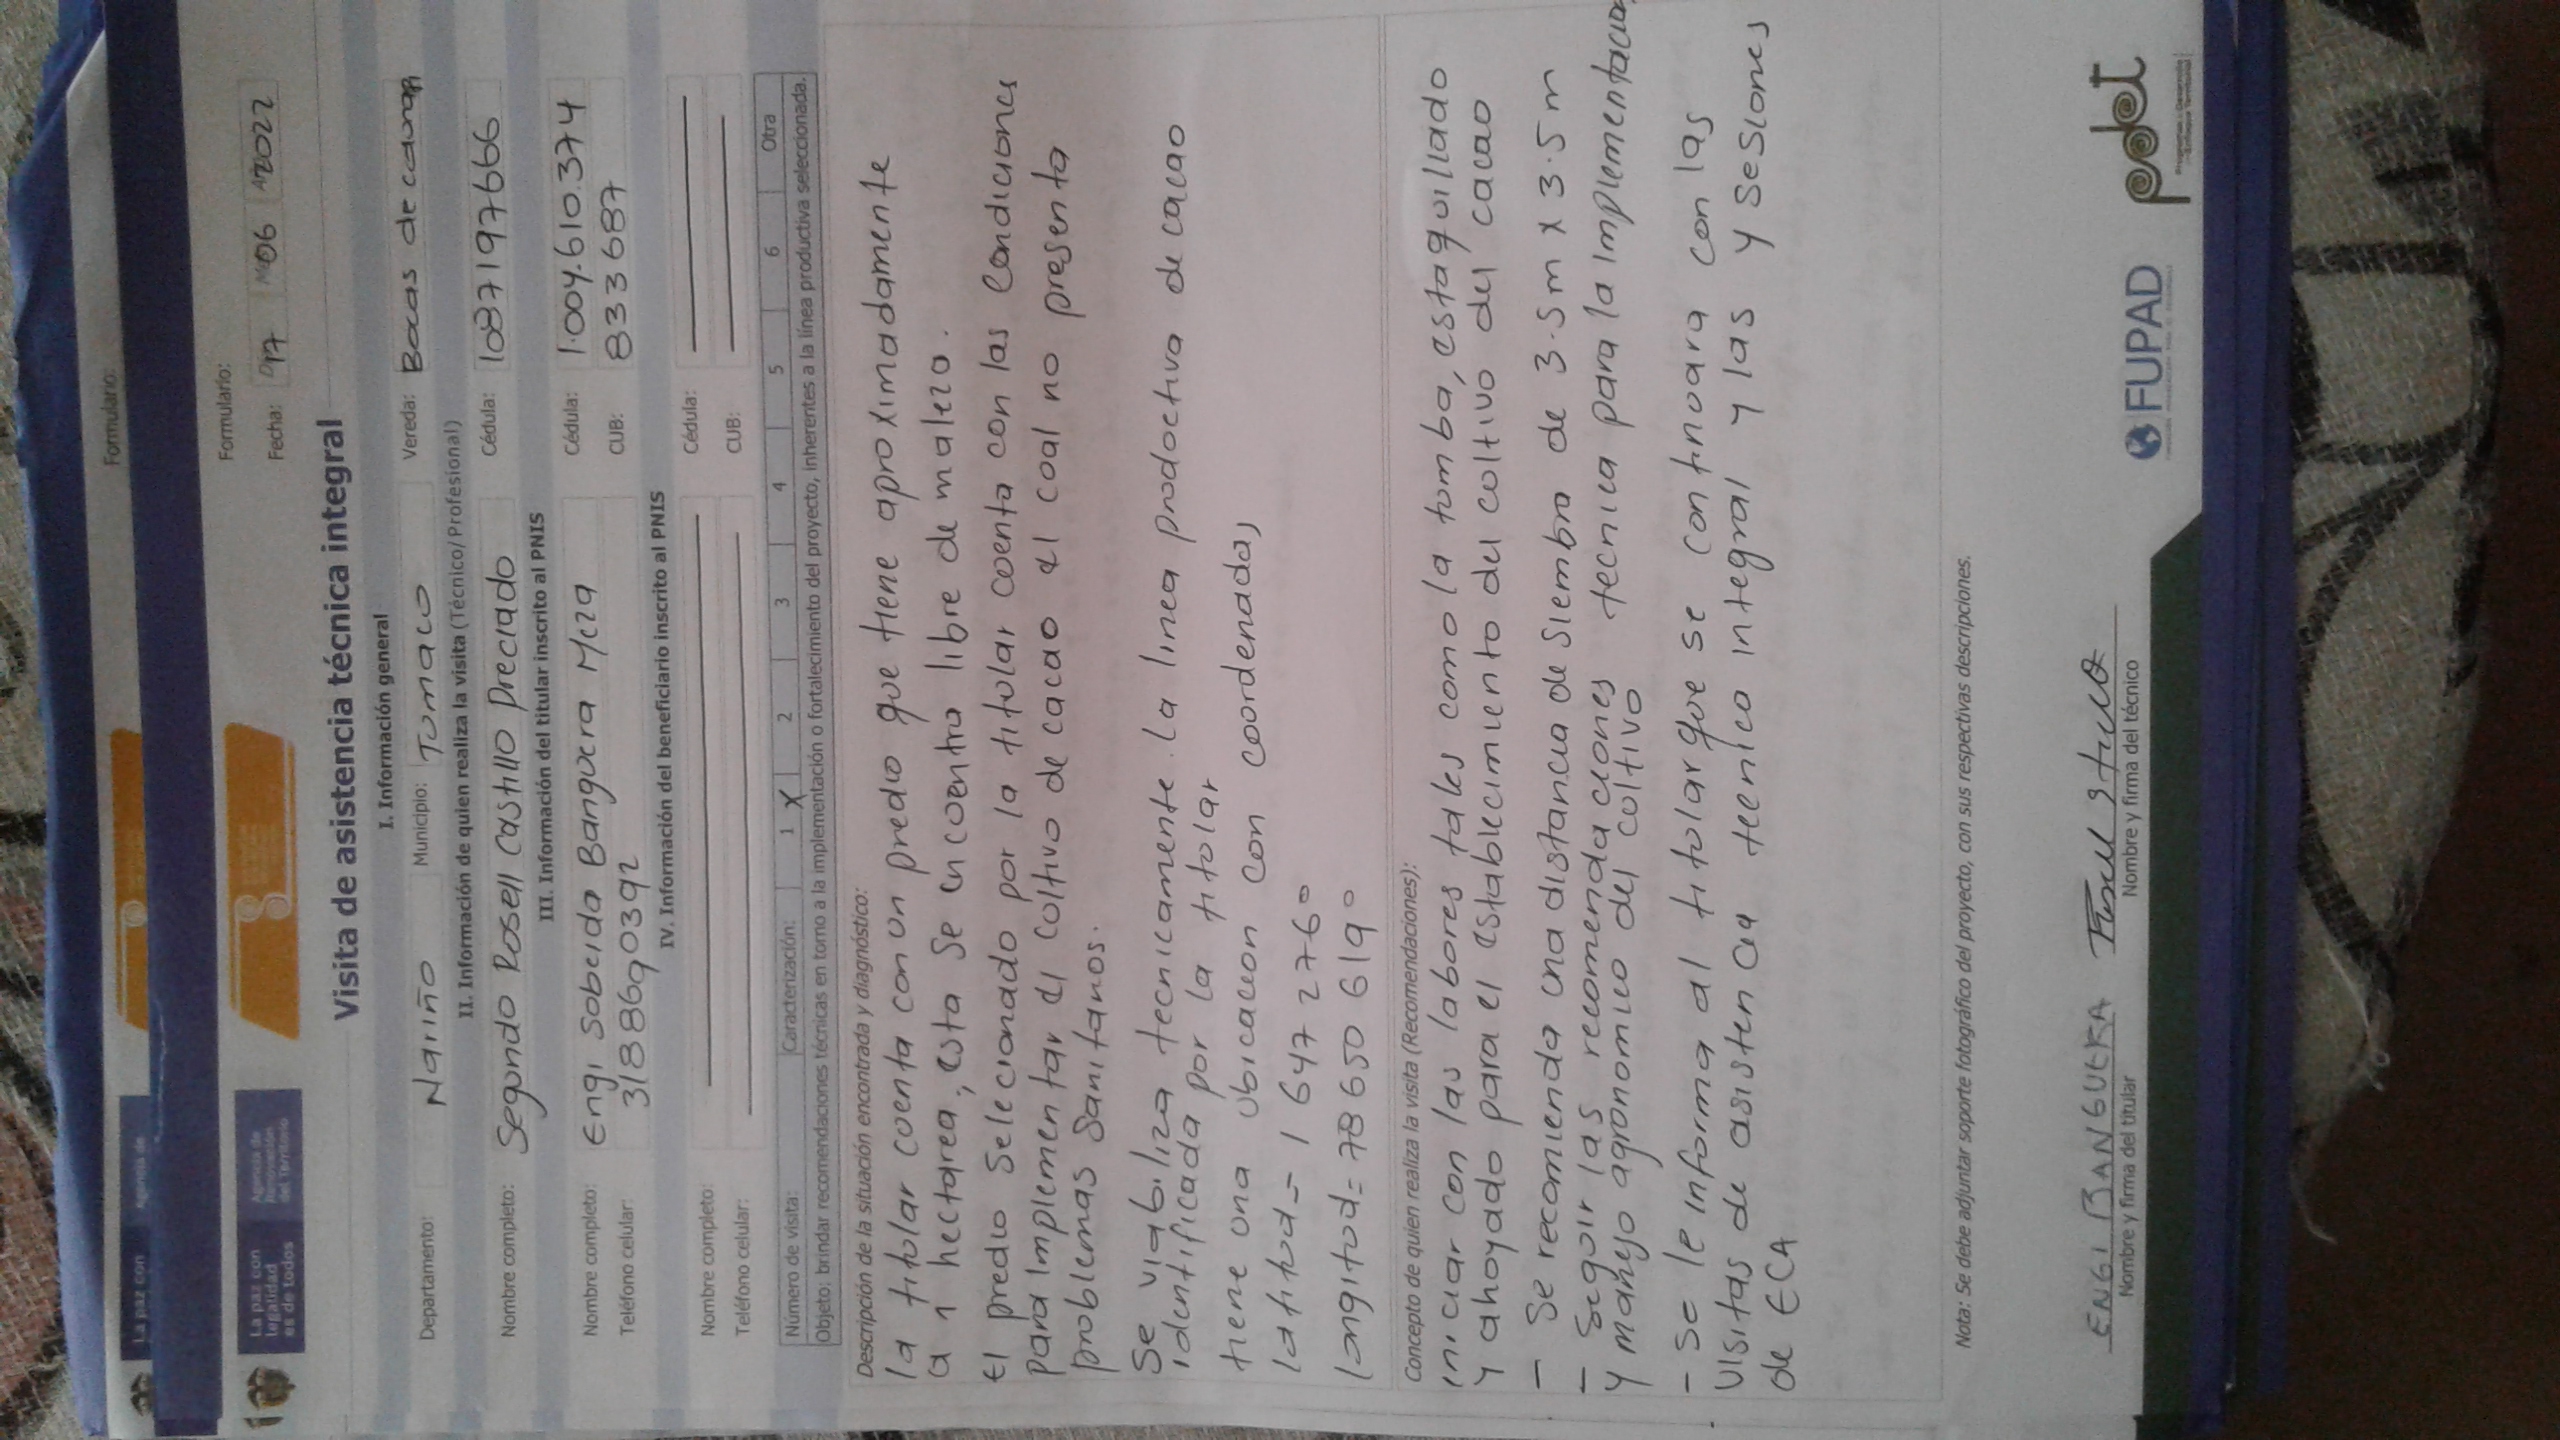 La paz con
Agencia de
Formulario:
La paz con
legalidad
es de todos
Agencia de
Renovación
del Territorio
Formulario:
Fecha: D17 M06 A2022
Visita de asistencia técnica integral
I. Información general
Departamento: Nariño Municipio: Tumaco Vereda: Bocas de
II. Información de quien realiza la visita (Técnico/Profesional)
Nombre completo: Segundo Rosell Castillo Preciado Cédula: 1087197666
III. Información del titular inscrito al PNIS
Nombre completo: Engi Sobeida Banguera Meza Cédula: 1.004.610.374
Teléfono celular: 3188690392 CUB: 833687
IV. Información del beneficiario inscrito al PNIS
Nombre completo: Cédula:
Teléfono celular: CUB:
Número de visita: Caracterización: 1 X 2 3 4 5 6 Otra
Objeto: brindar recomendaciones técnicas en torno a la implementación o fortalecimiento del proyecto, inherentes a la línea productiva seleccionada.
Descripción de la situación encontrada y diagnóstico:
la titular cuenta con un predio que tiene aproximadamente
a 1 hectarea, esta se encuentra libre de malezo.
El predio selecionado por la titular cuenta con las condiciones
para implementar el cultivo de cacao el cual no presenta
problemas sanitarios.
Se viabiliza tecnicamente. la linea productiva de cacao
identificada por la titular
tiene una ubicacion con coordenadas
latitud = 1 647 276°
longitud = 78 650 619°
Concepto de quien realiza la visita (Recomendaciones):
iniciar con las labores tales como la tumba, estaquillado
y ahoyado para el establecimiento del cultivo del cacao
- Se recomienda una distancia de siembra de 3.5 m x 3.5 m
- Seguir las recomendaciones tecnica para la implementacion
y manejo agronomico del cultivo
- Se le informa al titular que se continuara con las
visitas de asistencia tecnica integral y las y sesiones
de ECA
Nota: Se debe adjuntar soporte fotográfico del proyecto, con sus respectivas descripciones.
ENGI BANGUERA
Nombre y firma del titular
Nombre y firma del técnico
FUPAD
pdet